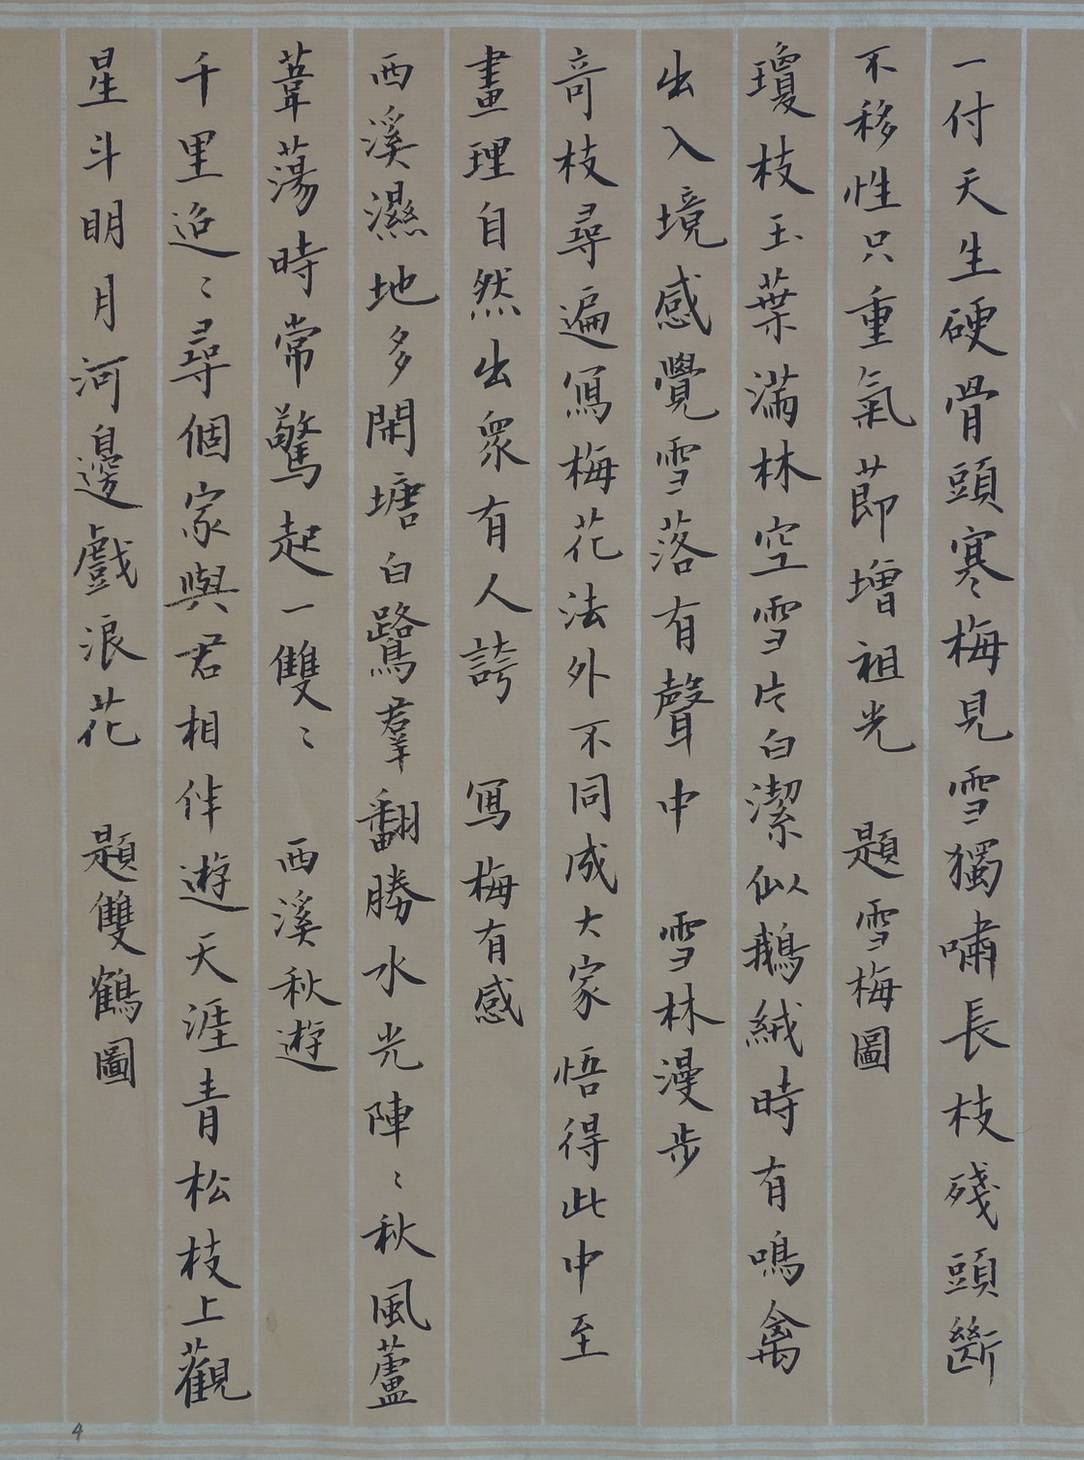 一付天生硬骨頭寒梅見雪獨嘯長枝殘頭斷
不移性只重氣節增祖光　題雪梅圖
瓊枝玉葉滿林空雪片白潔似鵝絨時有鳴禽
出入境感覺雪落有聲中　雪林漫步
奇枝尋遍寫梅花法外不同成大家悟得此中至
畫理自然出衆有人誇　寫梅有感
西溪濕地多閑塘白鷺羣翻勝水光陣〻秋風蘆
葦蕩時常驚起一雙〻　西溪秋遊
千里迢〻尋個家與君相伴遊天涯青松枝上觀
星斗明月河邊戲浪花　題雙鶴圖
4